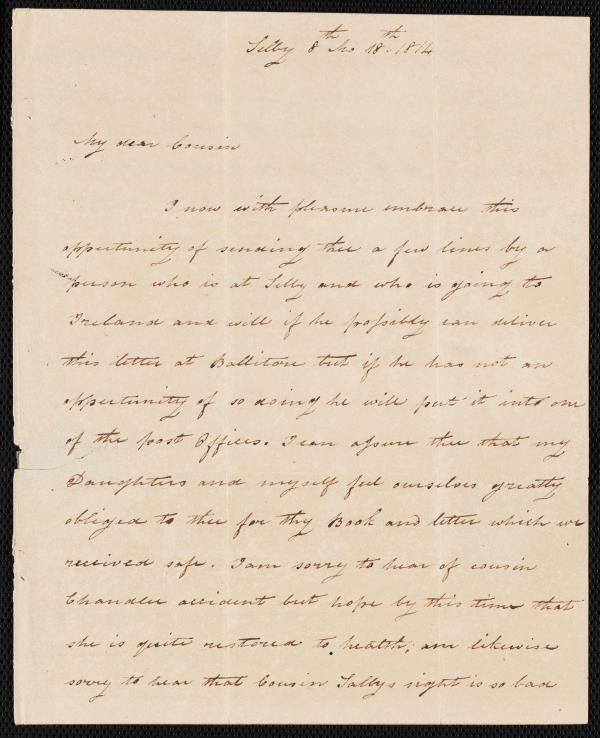 Selby 8th Mo 18th 1814
My dear Cousin
I now with pleasure embrace this
oppertunity of sending thee a few lines by a
person who is at Selby and who is going to
Ireland and will if he possibly can deliver
this letter at Ballitore but if he has not an
oppertunity of so doing he will put it into one
of the post Offices. I can assure thee that my
Daughters and myself feel ourselves greatly
obliged to thee for thy Book and letter which we
received safe. I am sorry to hear of cousin
Chandlee accident but hope by this time that
she is quite restored to health, am likewise
sorry to hear that Cousin Sallys sight is so bad